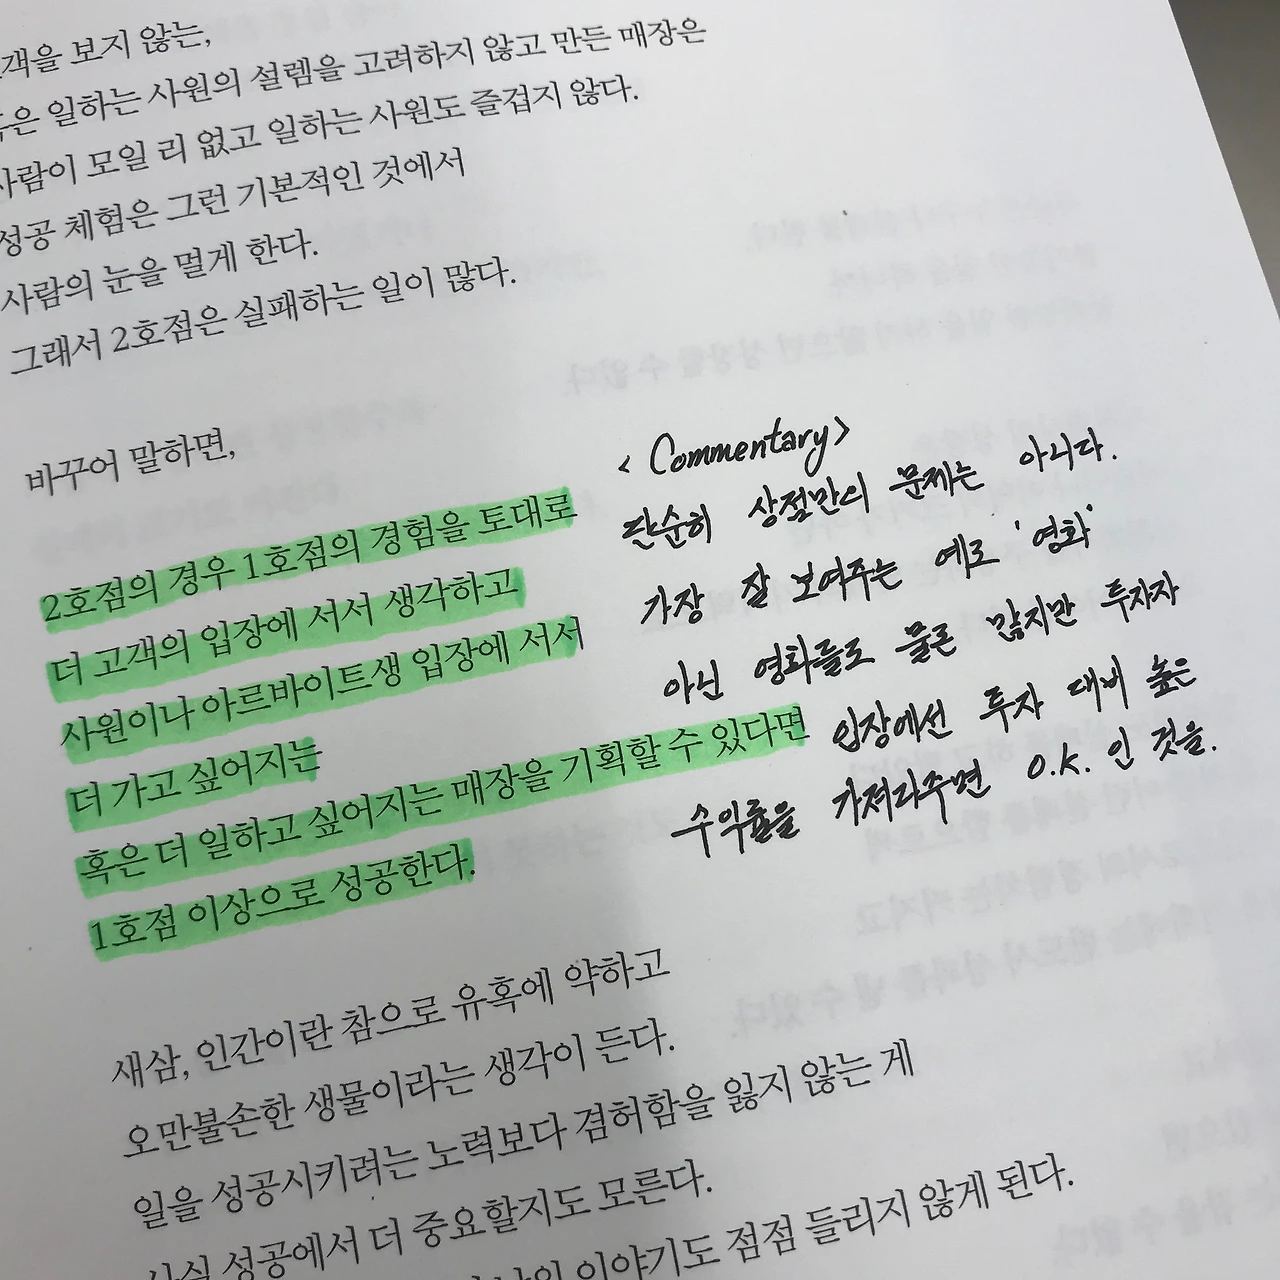 고객을 보지 않는,
혹은 일하는 사원의 설렘을 고려하지 않고 만든 매장은
사람이 모일 리 없고 일하는 사원도 즐겁지 않다.
성공 체험은 그런 기본적인 것에서
사람의 눈을 멀게 한다.
그래서 2호점은 실패하는 일이 많다.
바꾸어 말하면,
2호점의 경우 1호점의 경험을 토대로
더 고객의 입장에 서서 생각하고
사원이나 아르바이트생 입장에 서서
더 가고 싶어지는
혹은 더 일하고 싶어지는 매장을 기획할 수 있다면
1호점 이상으로 성공한다.
<Commentary>
단순히 상점만의 문제는 아니다.
가장 잘 보여주는 예로 '영화'
아닌 영화들도 물론 많지만 투자자
입장에선 투자 대비 높은
수익률을 가져다주면 O.K. 인 것을.
새삼, 인간이란 참으로 유혹에 약하고
오만불손한 생물이라는 생각이 든다.
일을 성공시키려는 노력보다 겸허함을 잃지 않는 게
사실 성공에서 더 중요할지도 모른다.
이야기도 점점 들리지 않게 된다.